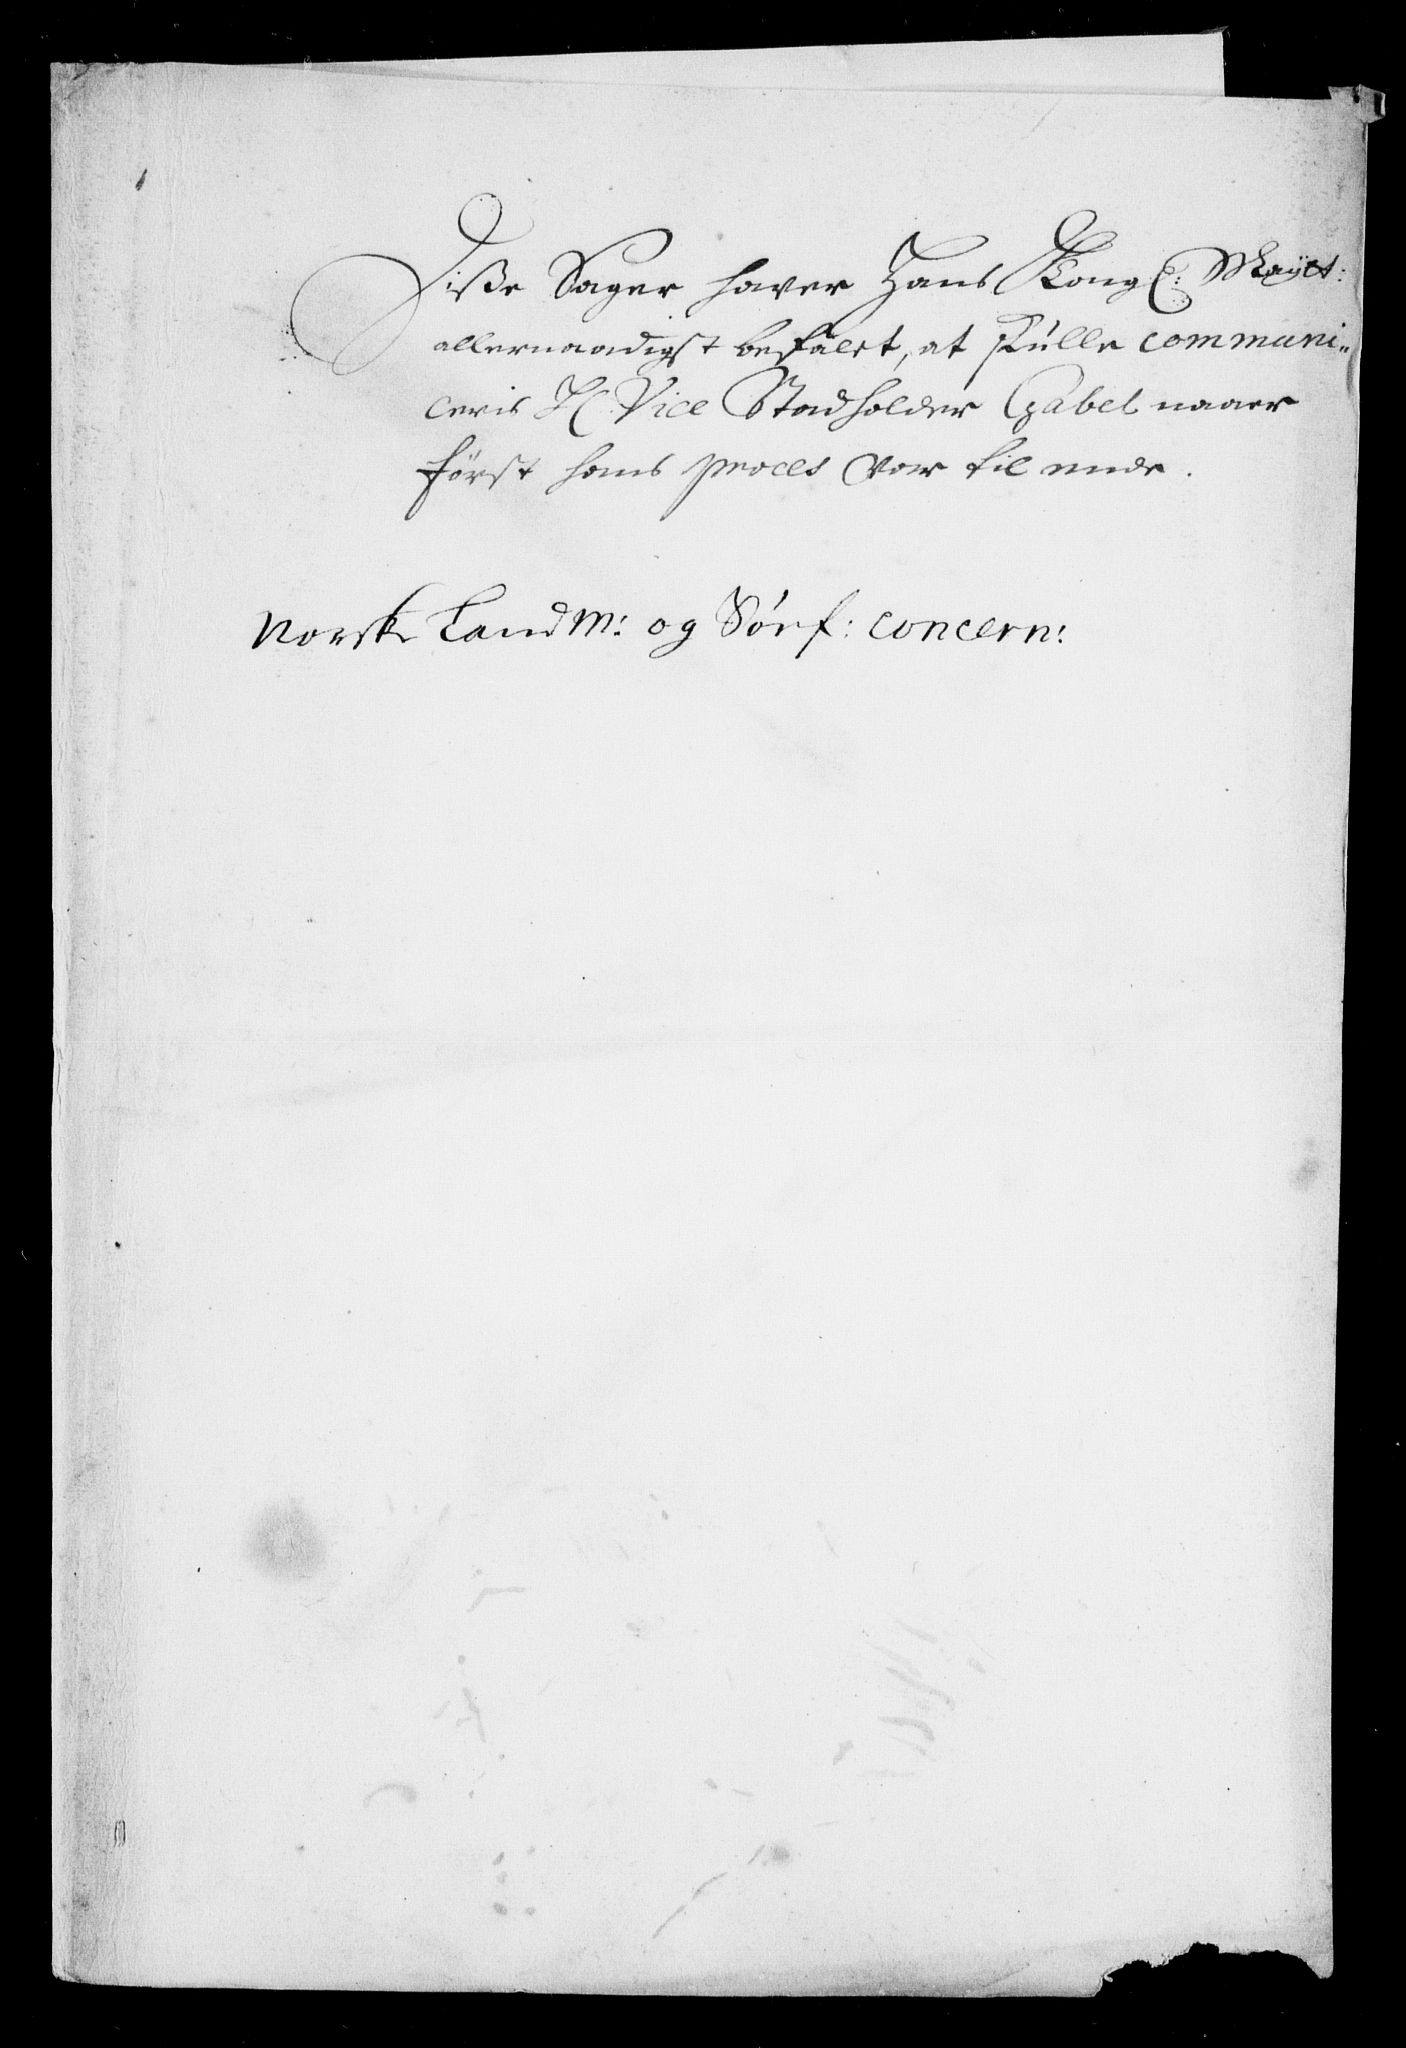 Diße Sager haver Hans Kongl: Mayst:
allernaadigst befalet, at skulle communi„
ceris H Vice Stadholder Gabel naaer
först hans proces var til ende.
Norske Land M: og Söef: concern: